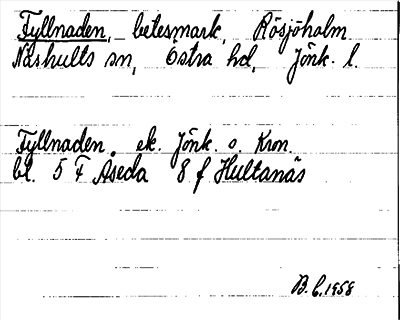 Fyllnaden, betesmark, Rösjöholm
Näshults sn, Östra hd, Jönk. l.
Fyllnaden ek. Jönk. o. Kron.
bl. 5 F Åseda 8 f Hultanäs
B. C. 1958